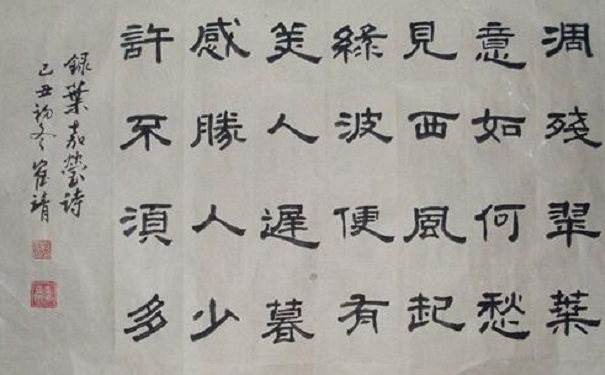 凋殘翠葉
意如何愁
見西風起
綠波便有
美人遲暮
感勝人少
許不須多
録葉嘉瑩詩
己丑初冬崔靖